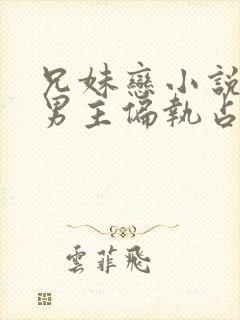 兄妹戀小說
男主偏執占
雲菲飛